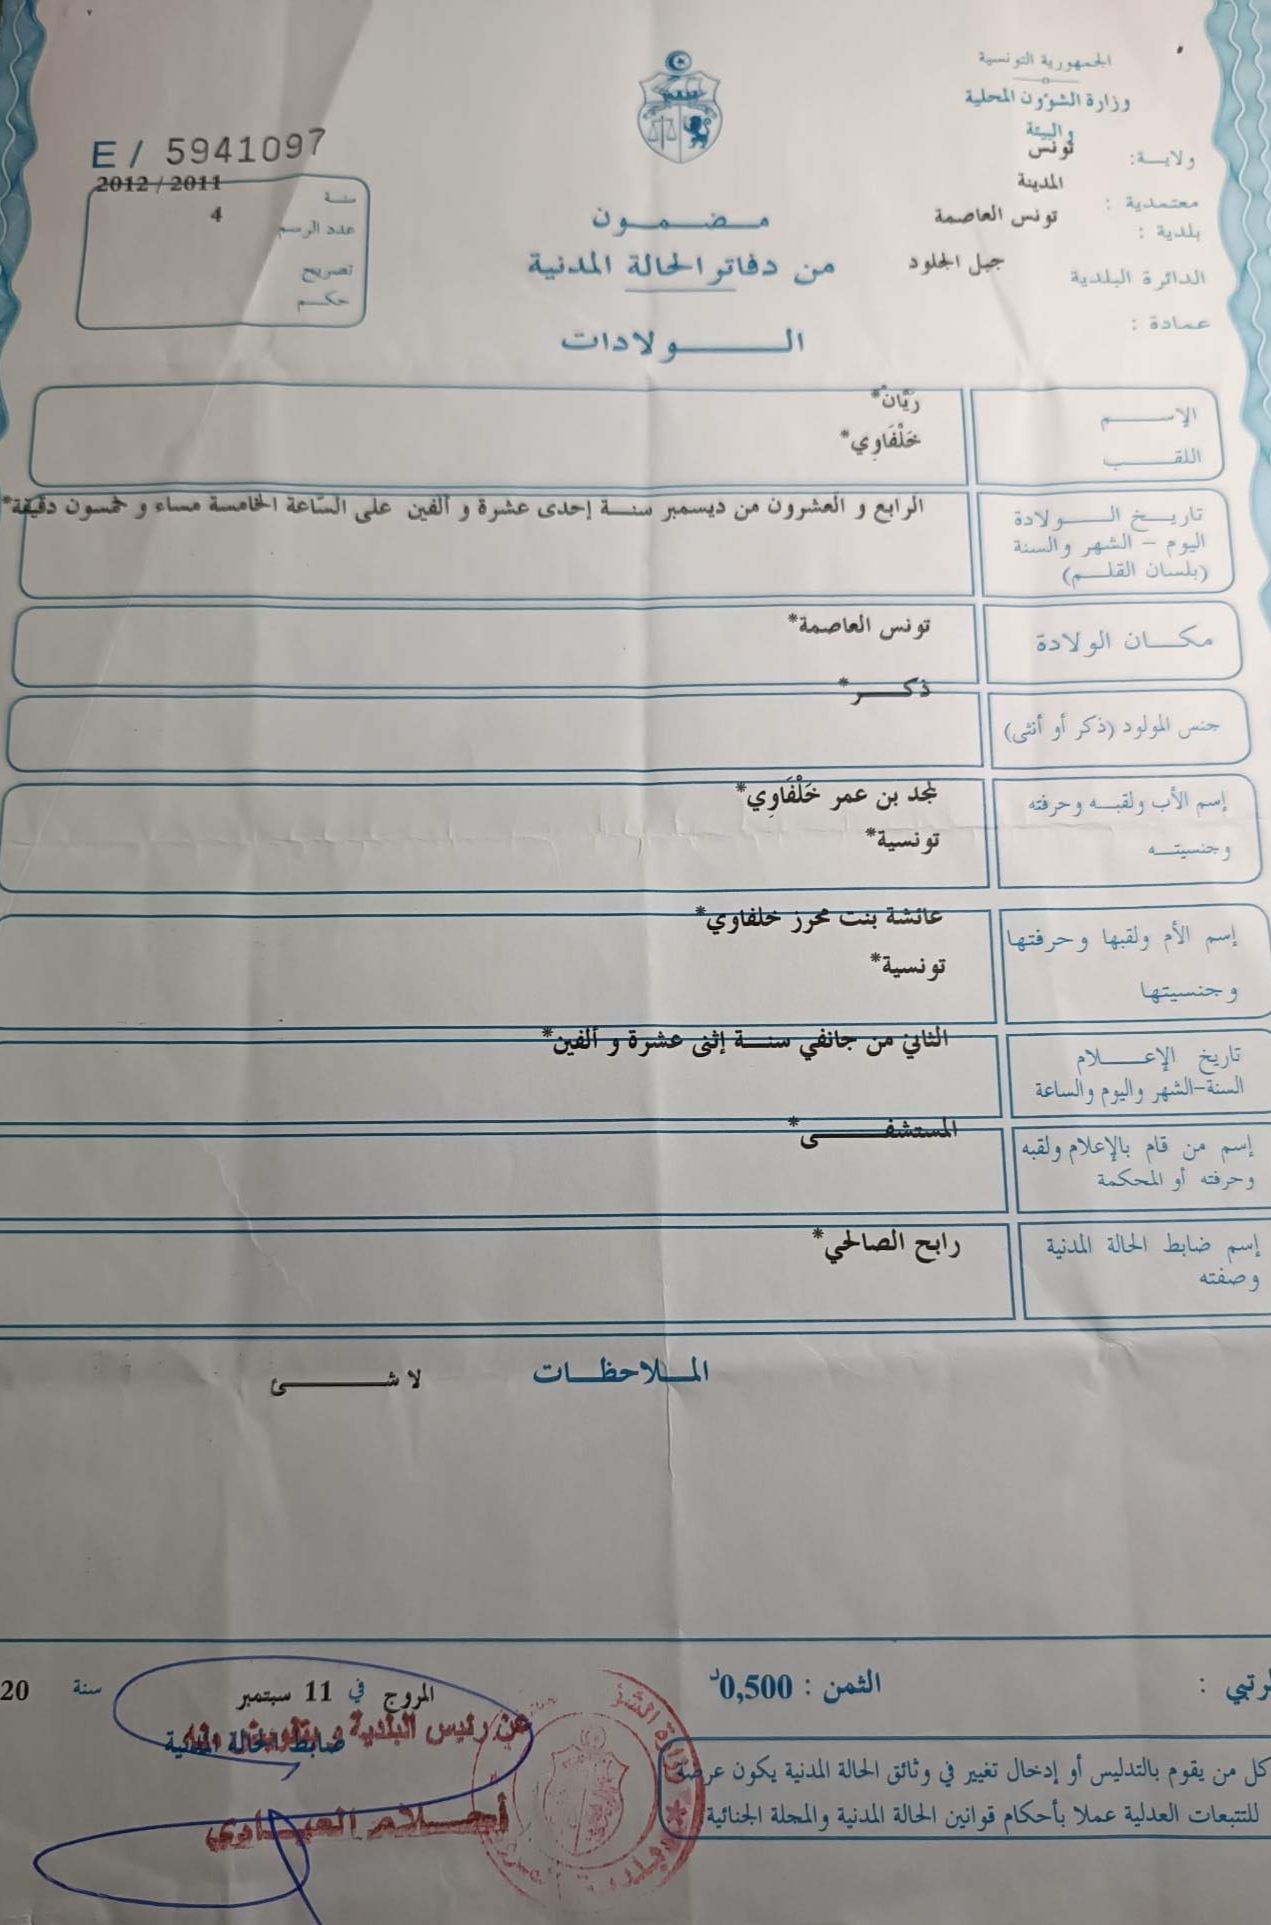 الجمهورية التونسية
وزارة الشؤون المحلية
والبيئة
ولايـــة: تونس
معتمدية : المدينة
بلدية : تونس العاصمة
الدائرة البلدية جبل الجلود
عمادة :
E / 5941097
سنة 2012 / 2011
عدد الرسم 4
تصريح
حكم
مـضـمــون
من دفاتر الحالة المدنية
الــــولادات
الإســـــم ريّان*
اللقـــب خَلْفَاوِي*
تاريـــخ الـــــولادة الرابع و العشرون من ديسمبر سنة إحدى عشرة و ألفين على السّاعة الخامسة مساء و خمسون دقيقة*
اليوم - الشهر والسنة
(بلسان القلـــم)
مكـــان الولادة تونس العاصمة*
جنس المولود (ذكر أو أنثى) ذكـــر*
إسم الأب ولقبـــه وحرفته بن عمر خَلْفَاوِي*
وجنسيتـــه تونسية*
إسم الأم ولقبها وحرفتها عائشة بنت محرز خلفاوي*
وجنسيتها تونسية*
تاريخ الإعـــلام الثاني من جانفي سنة إثنى عشرة و ألفين*
السنة-الشهر واليوم والساعة
إسم من قام بالإعلام ولقبه المستشفـــى*
وحرفته أو المحكمة
إسم ضابط الحالة المدنية رابح الصالحي*
وصفته
المـــلاحظـــات لا شـــئ
الثمن : 0,500د
المروج في 11 سبتمبر سنة 20
ضابط الحالة المدنية
عن رئيس البلدية
كل من يقوم بالتدليس أو إدخال تغيير في وثائق الحالة المدنية يكون عرضة
للتتبعات العدلية عملا بأحكام قوانين الحالة المدنية والمجلة الجنائية
أحـــلام العيـــادي